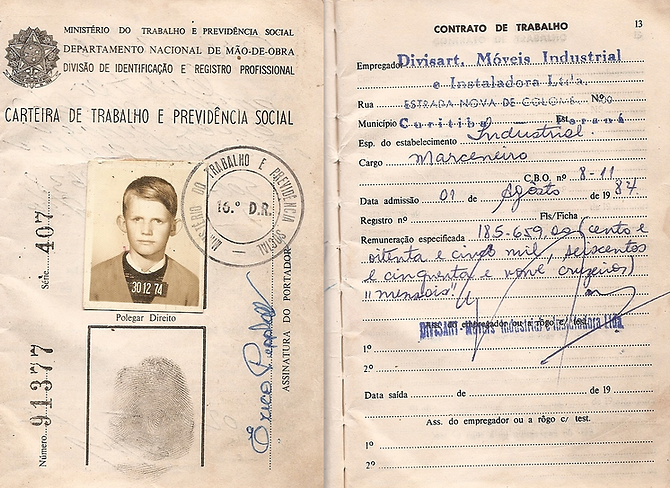 MINISTÉRIO DO TRABALHO E PREVIDÊNCIA SOCIAL
DEPARTAMENTO NACIONAL DE MÃO-DE-OBRA
DIVISÃO DE IDENTIFICAÇÃO E REGISTRO PROFISSIONAL
CARTEIRA DE TRABALHO E PREVIDÊNCIA SOCIAL
MINISTÉRIO DO TRABALHO E PREVIDÊNCIA SOCIAL
16.º D.R.
30 12 74
Polegar Direito
Número 91377 Série 407
ASSINATURA DO PORTADOR
CONTRATO DE TRABALHO 13
Empregador Divisart. Móveis Industrial
e Instaladora Ltda.
Rua ESTRADA NOVA DE Nº
Município Curitiba — Est. Paraná
Esp. do estabelecimento Industrial.
Cargo Marceneiro
C.B.O. nº 8-11
Data admissão 01 de Agosto de 1984
Registro nº Fls/Ficha
Remuneração especificada 185.659,00 (cento e
oitenta e cinco mil, seiscentos
e cinquenta e nove cruzeiros)
"mensais"
Ass. do empregador ou a rôgo c/ test.
Divisart. Móveis Industrial Ltda.
1º
2º
Data saída de de 19
Ass. do empregador ou a rôgo c/ test.
1º
2º